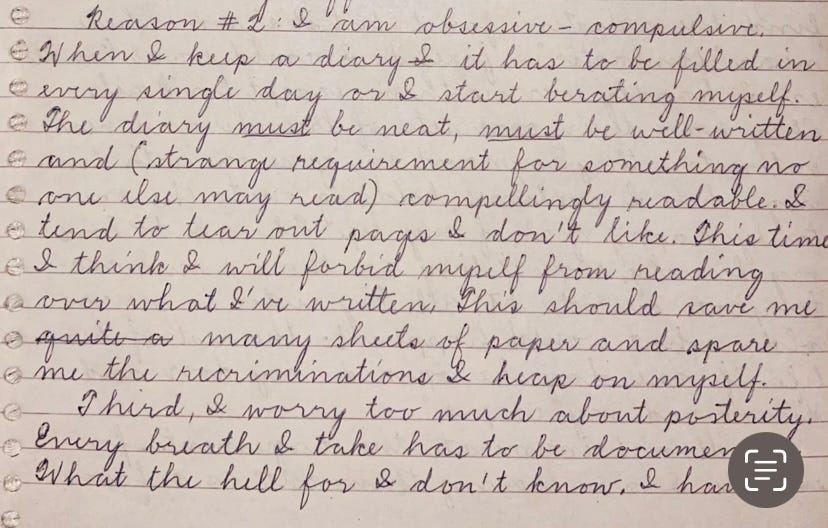 Reason #2: I am obsessive-compulsive.
When I keep a diary I it has to be filled in
every single day or I start berating myself.
The diary must be neat, must be well-written
and (strange requirement for something no
one else may read) compellingly readable. I
tend to tear out pags I don't like. This time
I think I will forbid myself from reading
over what I've written. This should save me
quite a many sheets of paper and spare
me the recriminations I heap on myself.
Third, I worry too much about posterity.
Every breath I take has to be documen
What the hell for I don't know. I hav